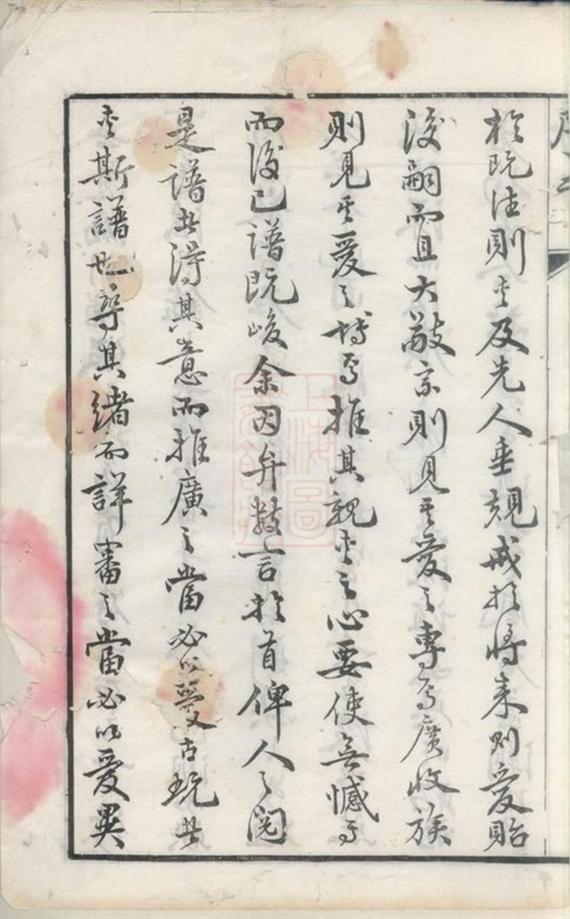 於既往則其及先人垂規戒於将来則愛貽
後嗣而且大敬宗則見其愛之專焉廣收族
則見其愛之博焉推其親其之心要使無憾焉
而後已譜既峻余因弁数言於首俾人之閱
是譜者得其意而推廣之當必以愛古玩者
其斯譜也尋其緒而詳審之當必以愛異